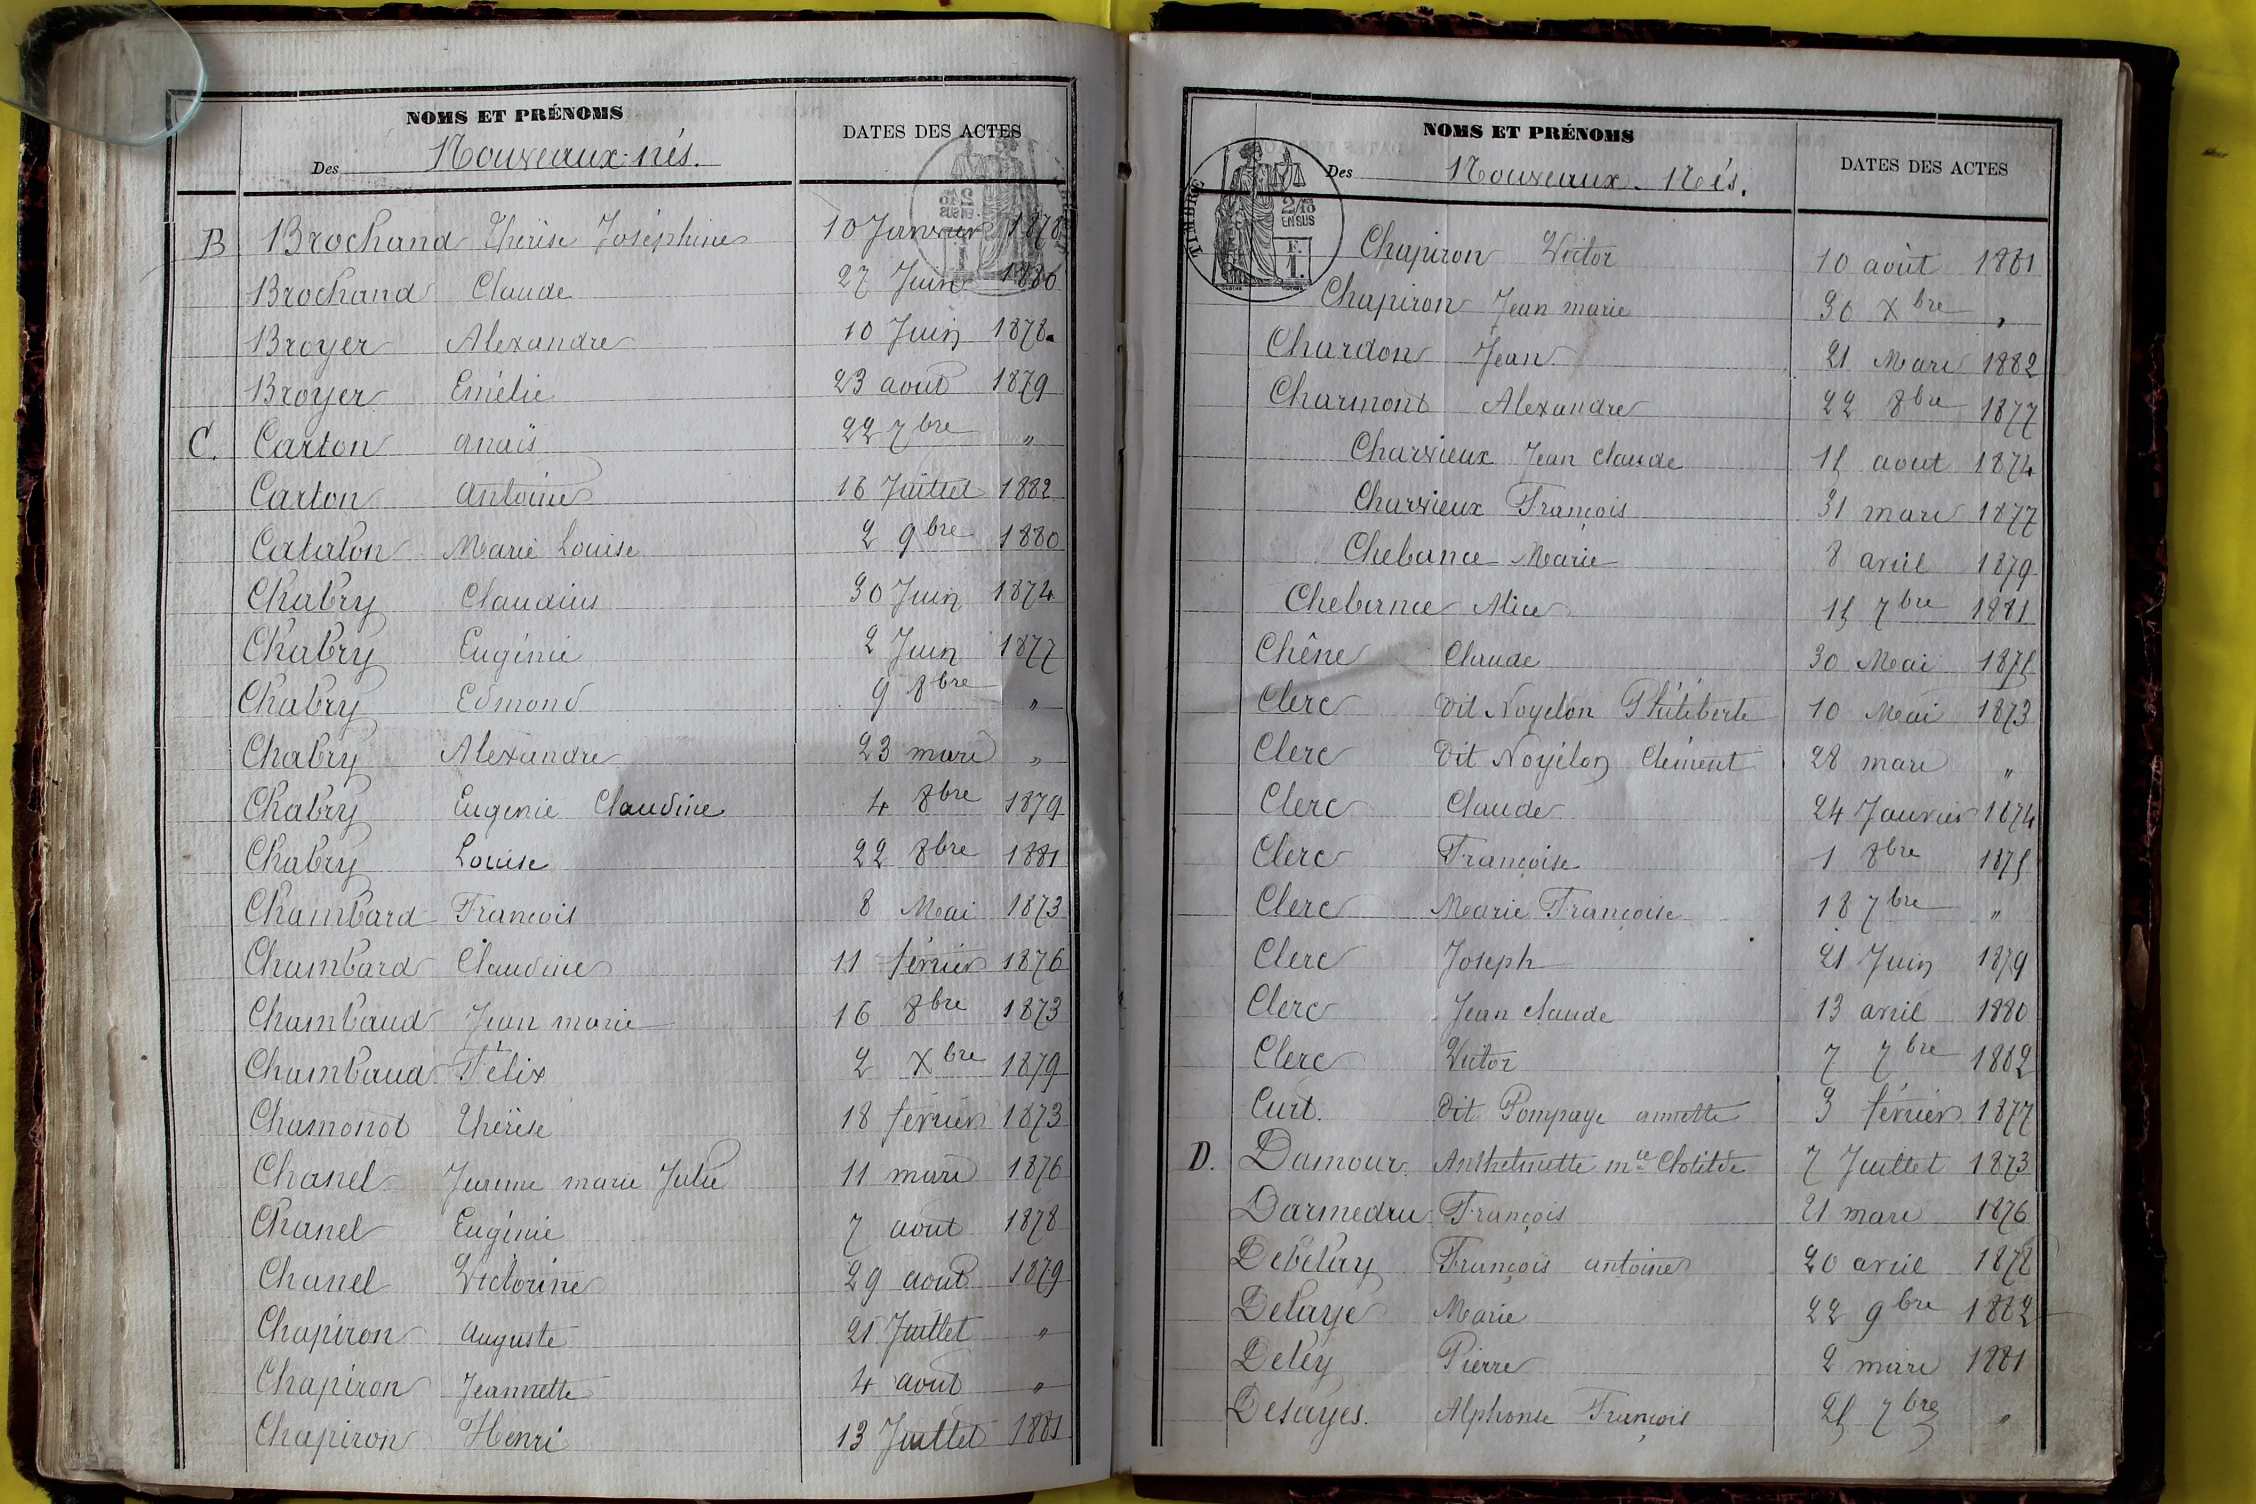 NOMS ET PRÉNOMS
DATES DES ACTES
Des Nouveaux-nés.
B Brochand Thérèse Joséphine 10 Janvier 1878
Brochand Claude 27 Juin 1880
Broyer Alexandre 10 Juin 1878
Broyer Emélie 23 aout 1879
C. Carton anaïs 22 7bre "
Carton antoine 16 Juillet 1882
Catalon Marie Louise 2 9bre 1880
Chabry Claudius 30 Juin 1874
Chabry Eugénie 2 Juin 1877
Chabry Edmond 9 8bre "
Chabry Alexandre 23 mars "
Chabry Eugenie Claudine 4 8bre 1879
Chabry Louise 22 8bre 1881
Chambard François 8 Mai 1873
Chambard Claudine 11 février 1876
Chambaud Jean marie 16 8bre 1873
Chambaud Félix 2 Xbre 1879
Chamonot Thérèse 18 février 1873
Chanel marie Julie 11 mars 1876
Chanel Eugénie 7 aout 1878
Chanel Victorine 29 aout 1879
Chapiron auguste 21 Juillet "
Chapiron Jeannette 4 aout "
Chapiron Henri 13 Juillet 1881
NOMS ET PRÉNOMS
DATES DES ACTES
Des Nouveaux-Nés.
TIMBRE
2/10
EN SUS
F.
1.
Chapiron Victor 10 août 1881
Chapiron Jean marie 30 Xbre "
Chardon Jean 21 Mars 1882
Charmont Alexandre 22 8bre 1877
Charvieux Jean claude 15 aout 1874
Charvieux François 31 mars 1877
Chebance Marie 8 avril 1879
Chebance Alice 15 7bre 1881
Chêne Claude 30 Mai 1875
Clerc dit Noyelon Philiberte 10 Mai 1873
Clerc dit Noyélon Clément 28 mars "
Clerc Claude 24 Janvier 1874
Clerc Françoise 1 8bre 1875
Clerc Marie Françoise 18 7bre "
Clerc Joseph 21 Juin 1879
Clerc Jean claude 13 avril 1880
Clerc Victor 7 7bre 1882
Curt. dit Pompaye annette 3 février 1877
D. Damour Anthelmette mie Clotilde 7 Juillet 1873
Darmedru François 21 mars 1876
Debelay François antoine 20 avril 1878
Delaye Marie 22 9bre 1882
Deléy Pierre 2 mars 1881
Desayes. Alphonse François 25 7bre "